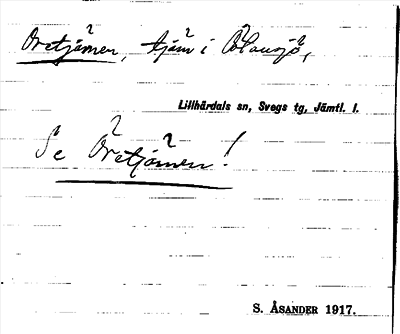 Oretjärnen, tjärn i Öransjö,
Lillhärdals sn, Svegs tg, Jämtl. l.
Se Öretjärnen!
S. ÅSANDER 1917.